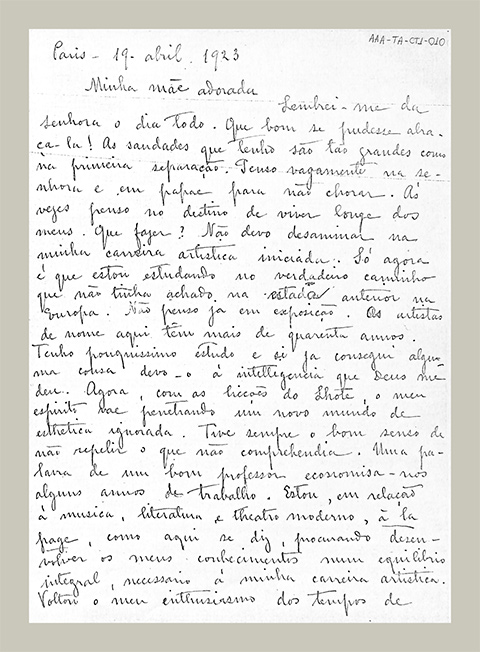 AAA-TA-CT1-010
Paris - 19 - abril . 1923
Minha mãe adorada
Lembrei-me da
senhora o dia todo. Que bom se pudesse abra-
ça-la! As saudades que tenho são tão grandes como
na primeira separação. Penso vagamente na se-
nhora e em papae para não chorar. Ás
vezes penso no destino de viver longe dos
meus. Que fazer? Não devo desanimar na
minha carreira artistica iniciada. Só agora
é que estou estudando no verdadeiro caminho
que não tinha achado na estada anterior na
Europa. Não penso já em exposição. Os artistas
de nome aqui têm mais de quarenta annos.
Tenho pouquissimo estudo e si já consegui algu-
ma cousa devo-o á intelligencia que Deus me
deu. Agora, com as licções do Lhote, o meu
espirito vae penetrando um novo mundo de
esthetica ignorada. Tive sempre o bom senso de
não repelir o que não comprehendia. Uma pa-
lavra de um bom professor economisa-nos
alguns annos de trabalho. Estou, em relação
á musica, literatura e theatro moderno, à la
page, como aqui se diz, procurando desen-
volver os meus conhecimentos num equilibrio
integral, necessario á minha carreira artistica.
Voltou o meu enthusiasmo dos tempos de